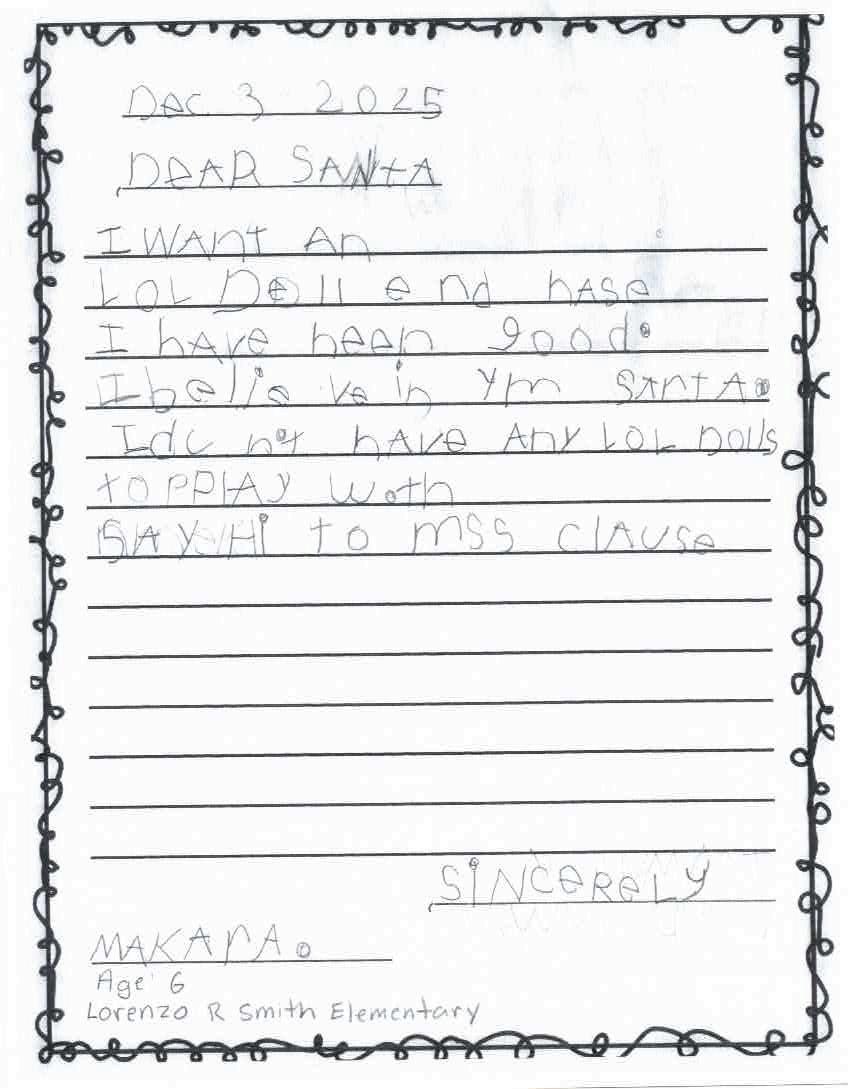 Dec 3 2025
DeAR SANtA
I WAnT An
LOL Doll end hASe
I hAve heen good.
I belie ve in ym SAntA.
I do not hAve Any LOL Dolls
to PPlAy with
SAY Hi to mSS clAuSe
SiNceReLy
MAKAYA.
Age 6
Lorenzo R Smith Elementary